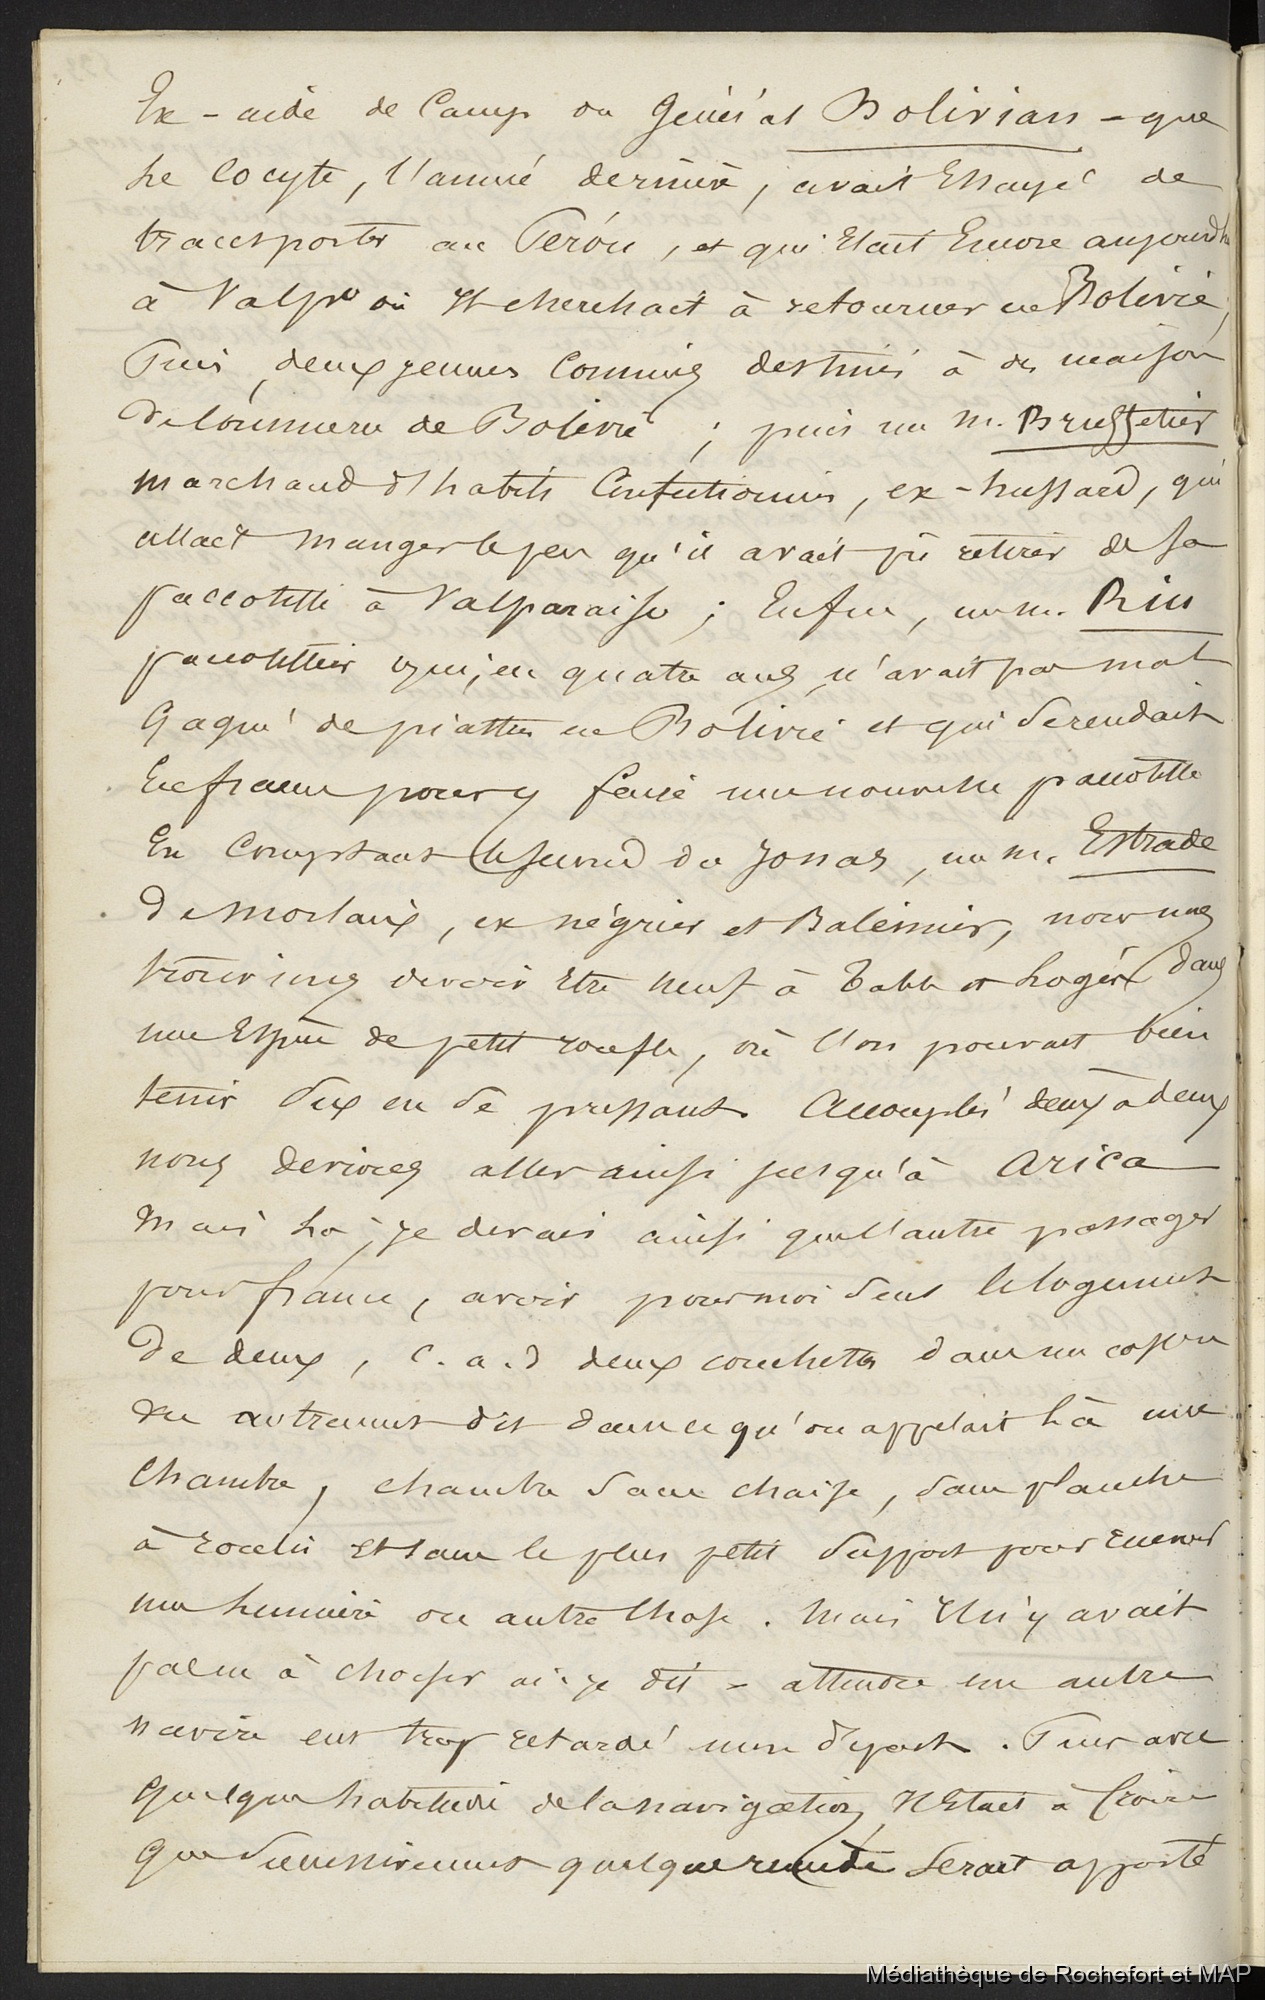 Ex-aide de Camp du Général Bolivian – que
le Cocyte, l'année dernière, avait Essayé de
transporter au Pérou, et qui Etait Encore aujourd'hu
à Valpº où Il cherchait à retourner en Bolivie,
Puis, deux jeunes Commis destinés à des maison
De Commerce de Bolivie ; puis un M.
marchand d'habits Confectionnés, ex-hussard, qui
allait manger le peu qu'il avait pû retirer de sa
paccotille à Valparaiso ; Enfin, un m. Rin
paccotillier qui, en quatre ans, n'avait pas mal
Gagné de piastres en Bolivie et qui Se rendait
En france pour y faire une nouvelle paccotille
En Comptant le Second du Jonas, un m. Estrade
De Morlaix, ex négrier et Baleinier, nous nous
trouvions devoir Etre neuf à Table et Logés dans
une Espèce de petit rouffle, où l'on pouvait bien
tenir Six en Se pressant. Accouplés deux à deux
nous devions aller ainsi jusqu'à Arica
Mais Là, je devais ainsi que l'autre passager
pour france, avoir pour moi Seul le logement
De deux, c.a.d deux couchettes dans un
ou autrement dit dans ce qu'on appelait Là une
Chambre, chambre Sans chaise, Sans planche
à roulis et sans le plus petit Support pour
une Lumière ou autre Chose. Mais Il n'y avait
pas eu à choisir ai-je dit – attendre un autre
navire eut trop retardé mon départ. Puis avec
Quelque habitude de la navigation, Il Etait à Croire
Que Successivement quelque remède Serait apporté
Médiathèque de Rochefort et MAP